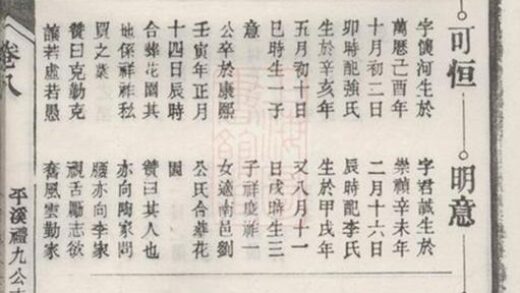 可恒
字懷河生於
萬曆己酉年
十月初二日
卯時配強氏
生於辛亥年
五月初十日
巳時生一子
意
公卒於康熙
壬寅年正月
十四日辰時
合葬花園其
地係祥祥私
買之業
贊曰克勤克
讓若虛若愚
明意
字君誠生於
崇禎辛未年
二月十六日
辰時配李氏
生於甲戌年
又八月十一
日戌時生三
子祥慶祥一
女適南邑劉
公氏合葬花
園
贊曰其人也
亦向陶家問
亦向李家
視舌勵志欲
奮風雲勤家
卷八
平溪禮九公